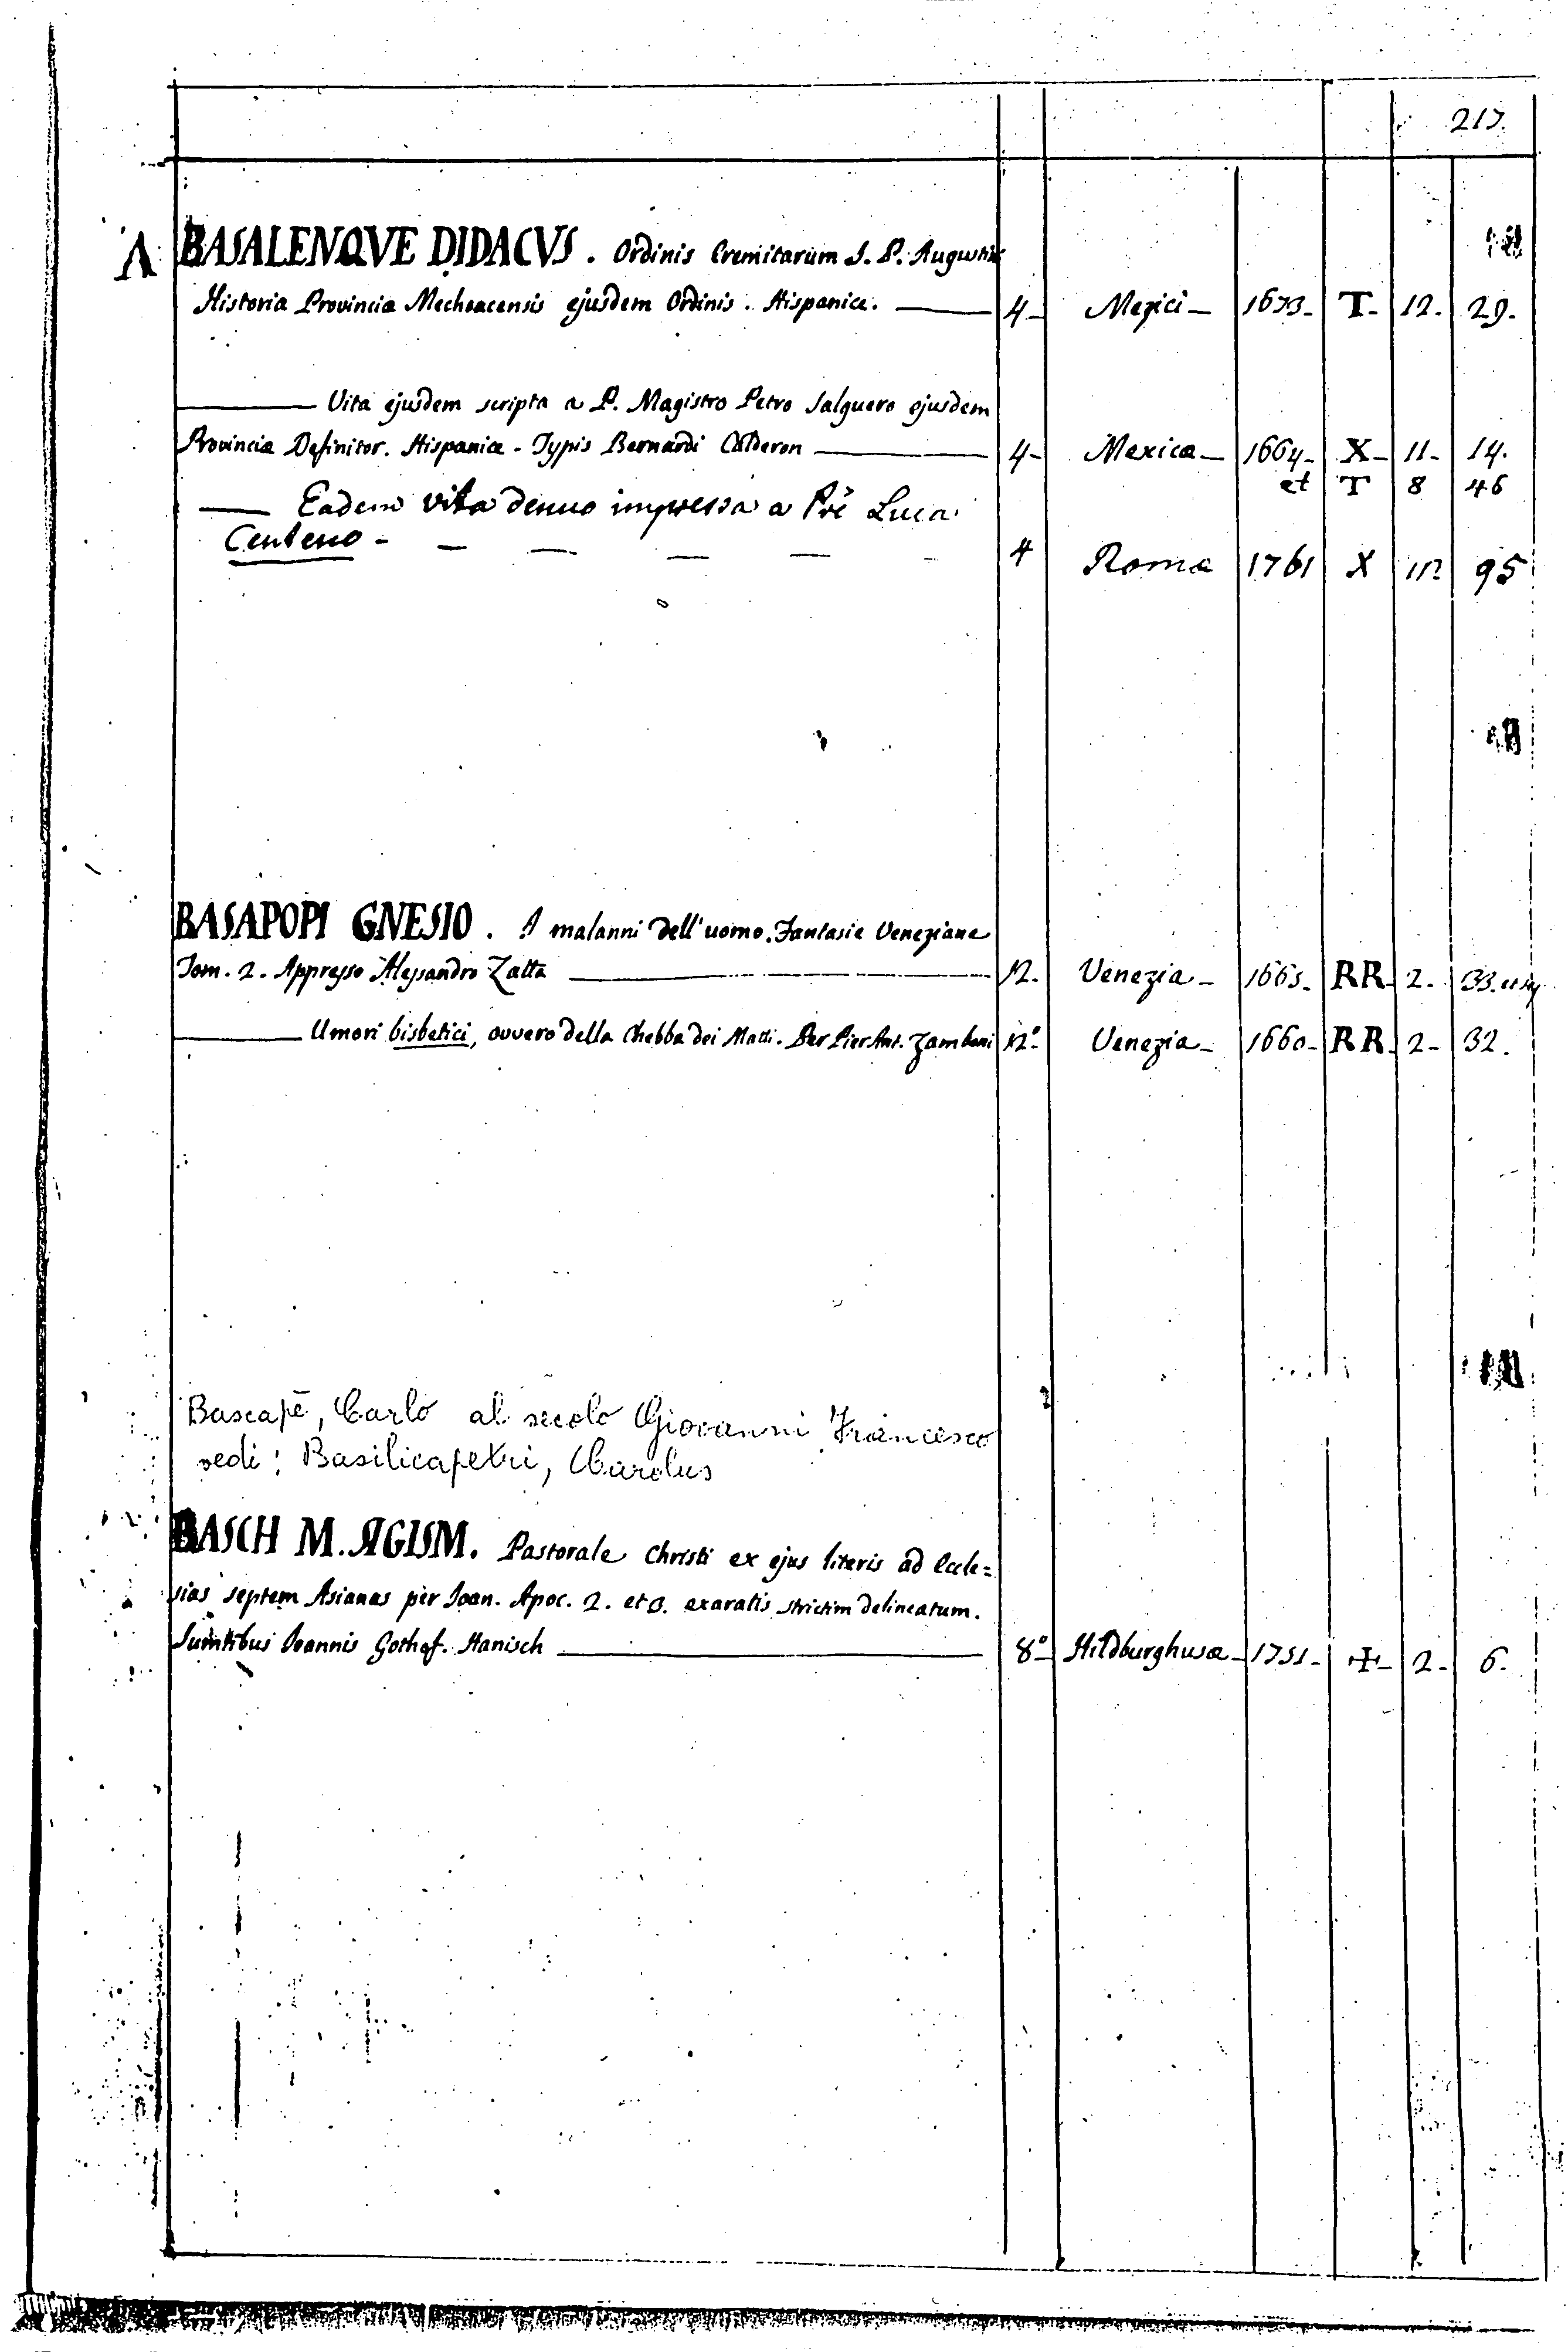 217.
A BASALENQVE DIDACVS. Ordinis Eremitarum S. P. Augustin
Historia Provinciæ Mechoacensis ejusdem Ordinis. Hispanice. 4 Mexici 1673 T 12. 29.
Vita ejusdem scripta a P. Magistro Petro Salguero ejusdem
Provinciæ Definitor. Hispanice - Typis Bernardi Calderon 4 Mexicæ 1664 X 11 14.
et T 8 46
Eadem vita denuo impressa a Prê Luca
Centeno 4 Romæ 1761 X 95
BASAPOPI GNESIO. I malanni dell'uomo. Fantasie Veneziane
Tom. 2. Appresso Alessandro Zatta 12. Venezia 1665 RR 2. 33. et
Umori bisbetici, ovvero della Chebba dei Matti. Per Pier Ant. Zamboni 12.º Venezia 1660 RR 2 32.
Bascapè, Carlo al secolo Giovanni Francesco
vedi: Basilicapetri, Carolus
BASCH M. SIGISM. Pastorale Christi ex ejus literis ad Eccle=
sias septem Asianas per Joan. Apoc. 2. et 3. exaratis strictim delineatum.
Sumtibus Joannis Gothof. Hanisch 8º Hildburghusæ 1751 ✢ 2 6.